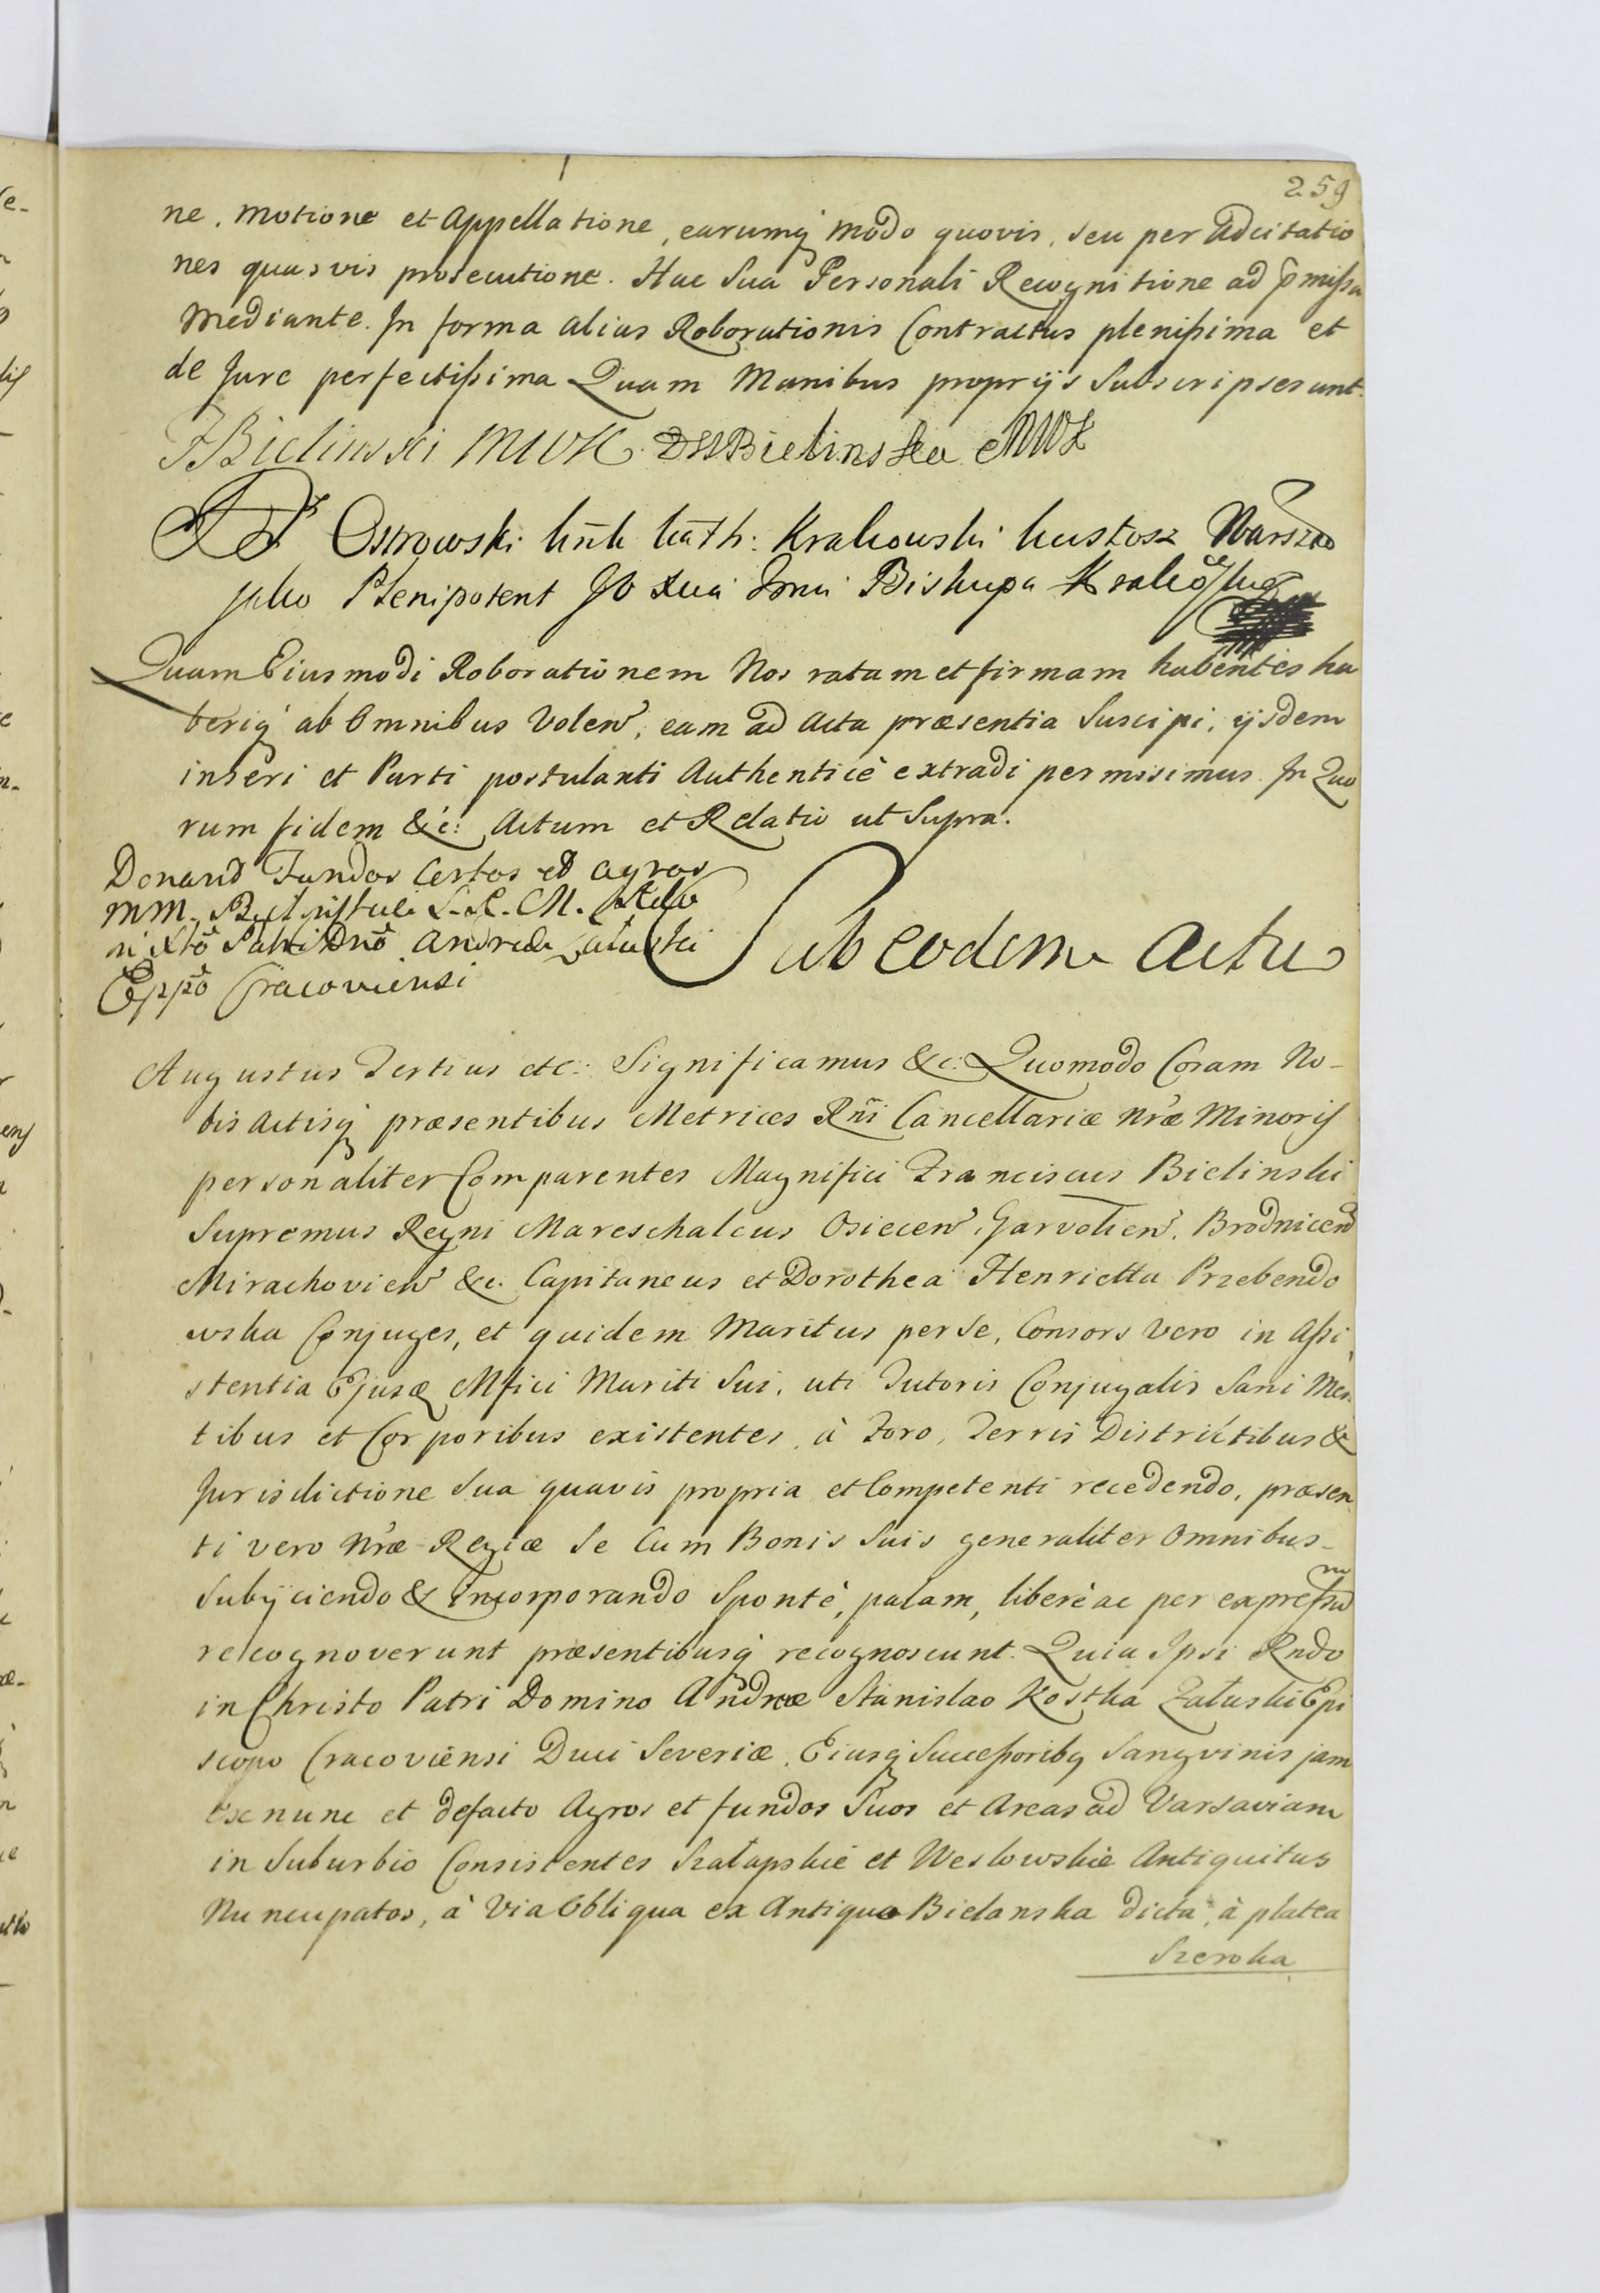 259
ne, motione et Appellatione, earumq modo quovis, seu per adcitatio
nes quasvis prosecutione. Hac Sua Personali Recognitione ad p̃missa
mediante. In forma alias Roborationis Contractus plenissima et
de Jure perfectissima Quam Manibus proprijs Subscripserunt.
FBielinski MWK DHBielinska MWK
Ostrowski kãth: Krakowski kustosz Warszaw
jako Plenipotent Jo Xcia Jmci Biskupa
Quam Eiusmodi Roborationem Nos ratam et firmam habentes ha
beriq ab Omnibus Volen, eam ad Acta præsentia Suscipi, ijsdem
inseri et Parti postulanti Authenticè extradi permisimus. In Quo
rum fidem &c: Actum et Relatio ut Supra.
Fundos Certos et agros
MM.
Patri Dno Andreæ Załuski
Eppo Cracoviensi
Sub eodem Actu
Augustus Tertius etc: Significamus &c: Quomodo Coram No-
bis Actisq præsentibus Metrices Rñi Cancellariæ Nræ Minoris
personaliter Comparentes Magnifici Franciscus Bielinski
Supremus Regni Mareschalcus Osiecen, Garvolien, Brodnicen
Mirachovien &c. Capitaneus et Dorothea Henrietta Przebendo
wska Conjuges, et quidem Maritus per Se, Consors vero in Assi
stentia Ejusd Mfici Mariti Sui, uti Tutoris Conjugalis Sani Men
tibus et Corporibus existentes, à Foro, Terris Districtibus &
Jurisdictione Sua quavis propria et Competenti recedendo, præsen
ti vero Nræ Regiæ Se Cum Bonis Suis generaliter Omnibus
Subijciendo & Incorporando Spontè, palam, liberè ac per expressum
recognoverunt præsentibusq recognoscunt. Quia Ipsi Rndo
in Christo Patri Domino Andreæ Stanislao Kostka Załuski Epi
scopo Cracoviensi Duci Severiæ, Eiusq Successoribq Sangvinis jam
ex nunc et defacto Agros et fundos Suos et Areas ad Varsaviam
in Suburbio Consistentes Szałapskie et Weslowskie Antiquitus
Nuncupatos, à Via Obliqua ex Antiquo Bielanska dicta, à platea
Szeroka